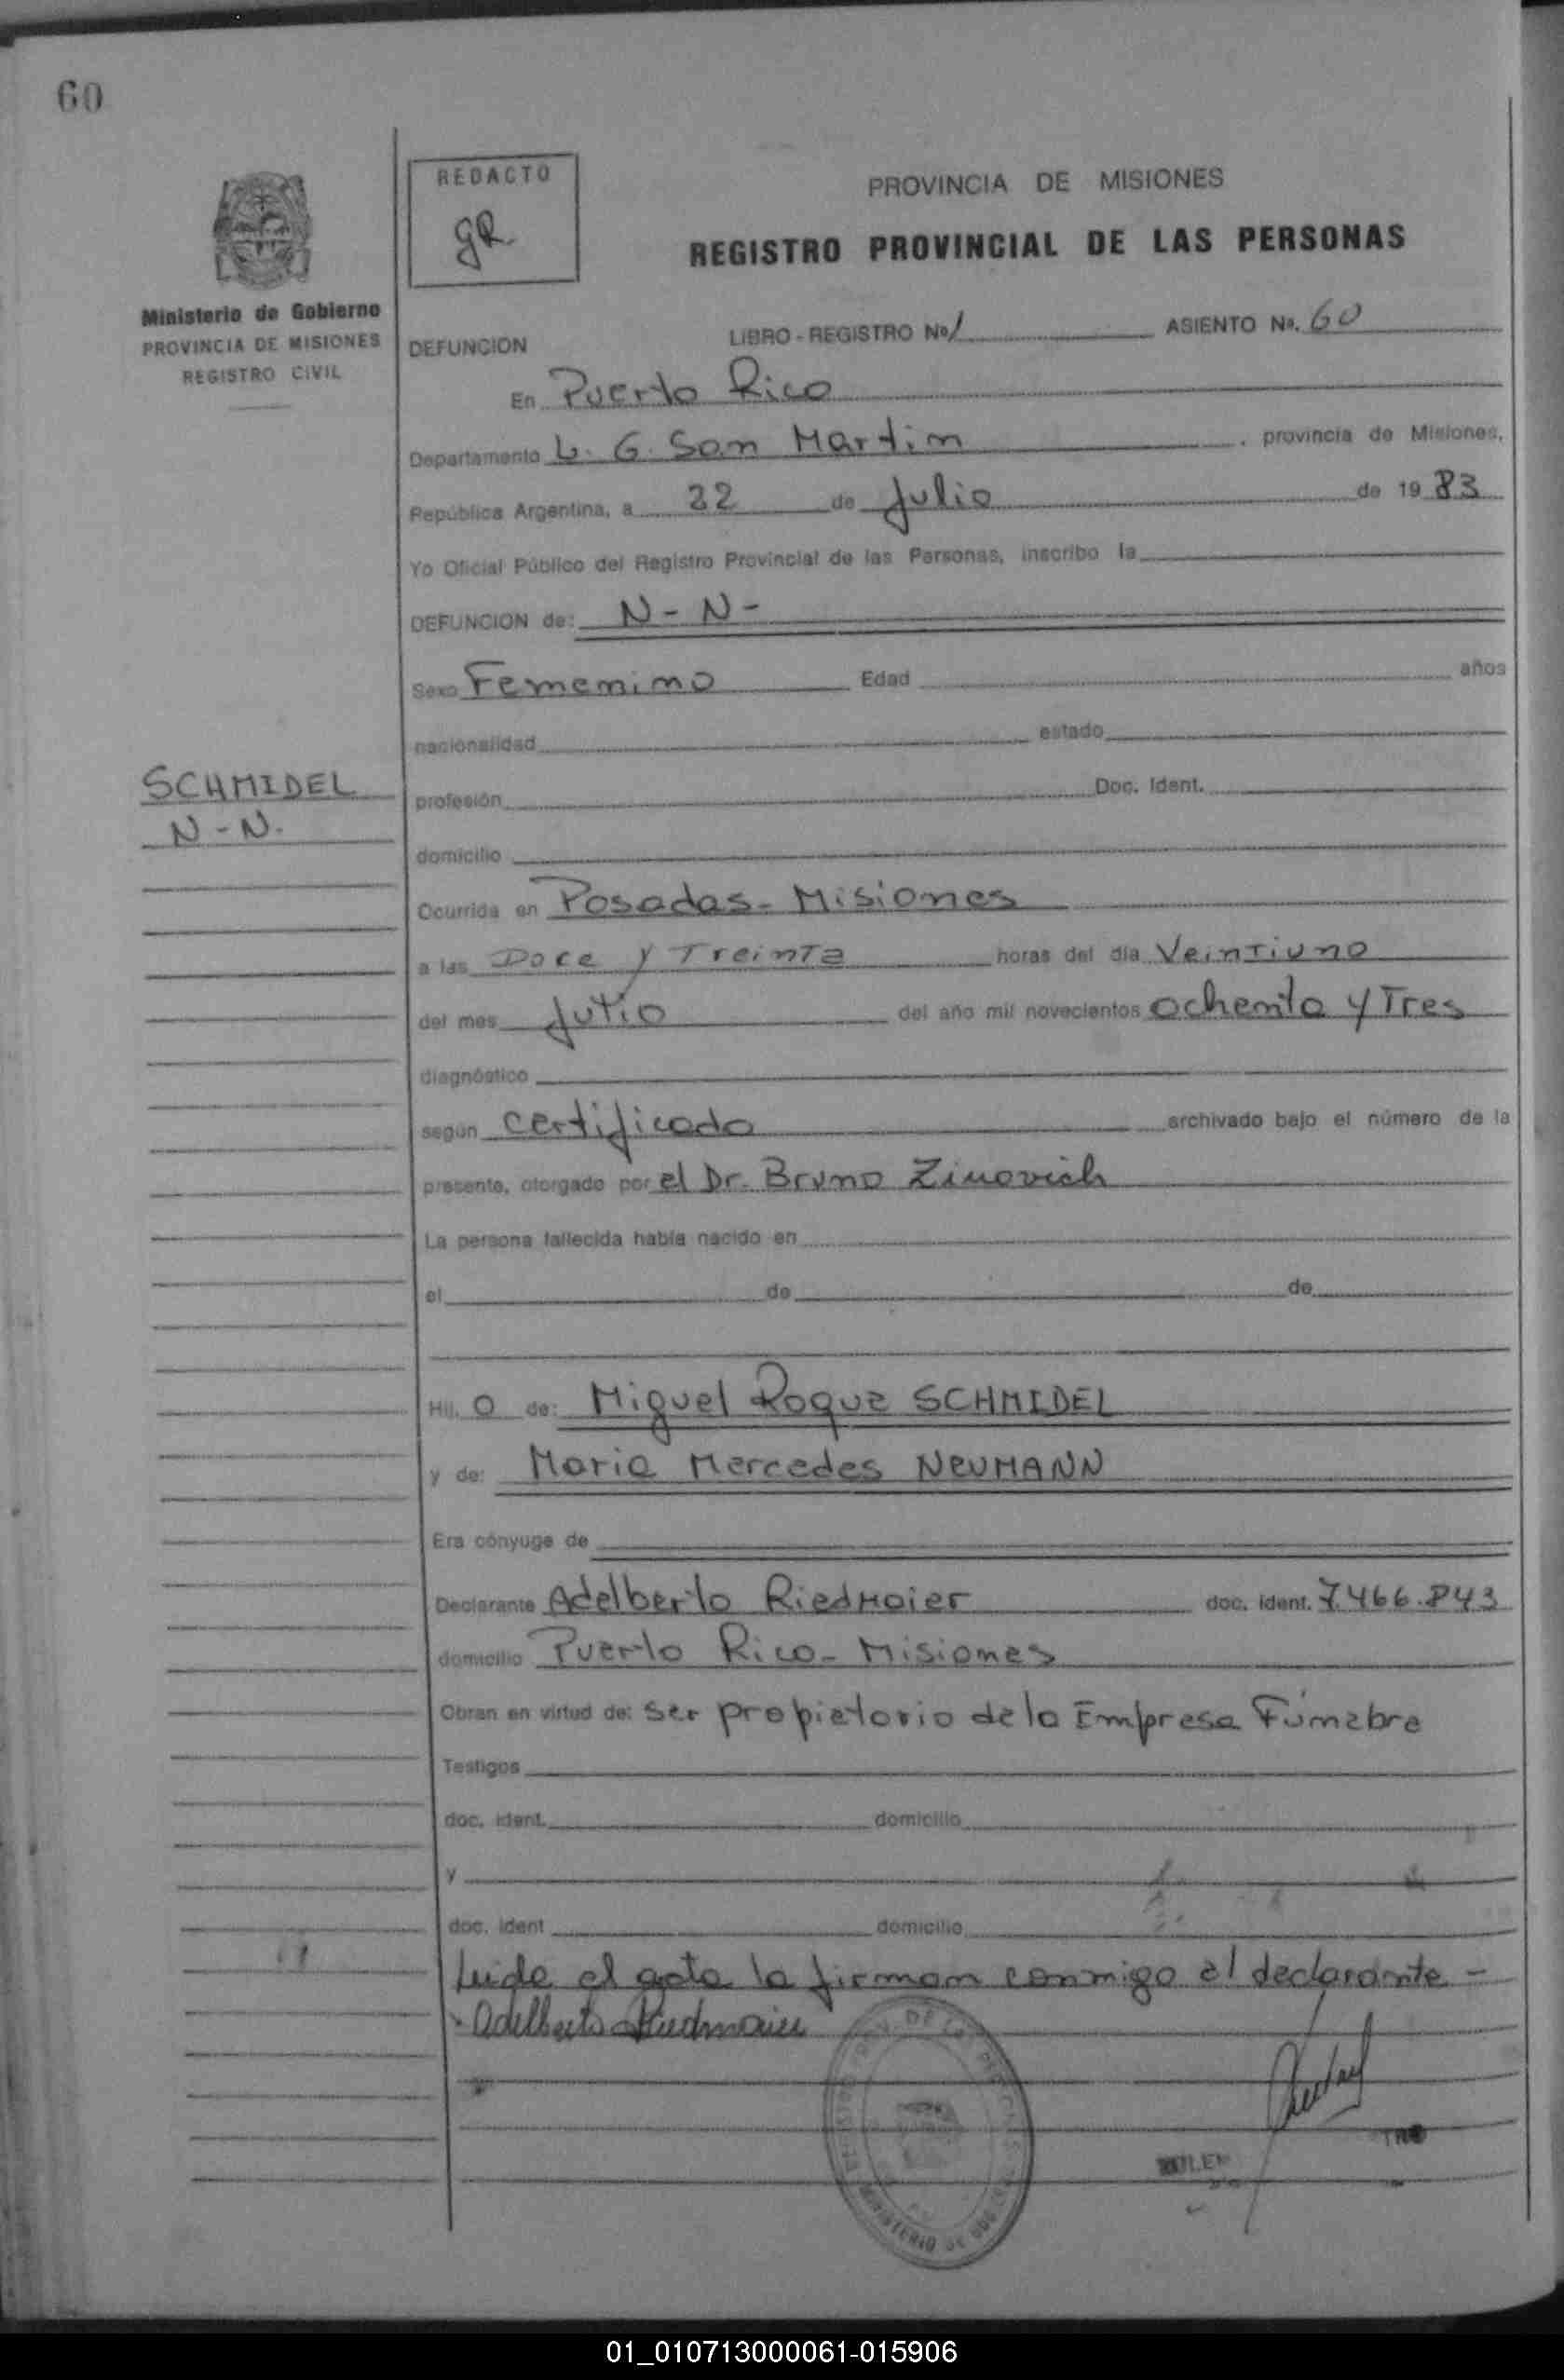 60
REDACTO
gR.
PROVINCIA DE MISIONES
REGISTRO PROVINCIAL DE LAS PERSONAS
Ministerio de Gobierno
PROVINCIA DE MISIONES
REGISTRO CIVIL
DEFUNCION LIBRO - REGISTRO No. 1 ASIENTO No. 60
En Puerto Rico
Departamento L. G. San Martin , provincia de Misiones,
República Argentina, a 22 de Julio de 19 83
Yo Oficial Público del Registro Provincial de las Personas, inscribo la
DEFUNCION de: N - N -
Sexo Femenino Edad años
nacionalidad estado
SCHMIDEL
N - N.
profesión Doc. Ident.
domicilio
Ocurrida en Posadas - Misiones
a las Doce y Treinta horas del día Veintiuno
del mes Julio del año mil novecientos ochenta y Tres
diagnóstico
según certificado archivado bajo el número de la
presente, otorgado por el Dr. Bruno Zinovich
La persona fallecida había nacido en
el de de
Hij O de: Miguel Roque SCHMIDEL
y de: Maria Mercedes NeUMANN
Era cónyuge de
Declarante Adelberto RiedMaier doc. ident. 7.466.843
domicilio Puerto Rico - Misiones
Obran en virtud de: ser propietario de la Empresa Fúnebre
Testigos
doc. ident. domicilio
y
doc. ident domicilio
Leida el acta la firman conmigo el declarante -
Adelberto Riedmaier
MINISTERIO DE
01_010713000061-015906